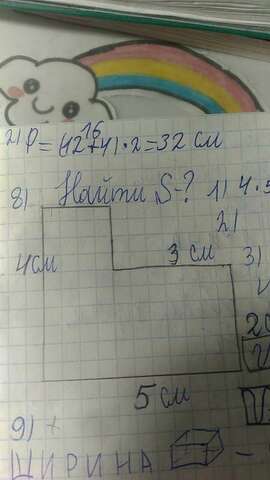 2) P = (12+4)·2=32 см
16
8) Найти S-? 1) 4·5
2)
4см
3 см
3)
5 см
9)
ШИРИНА